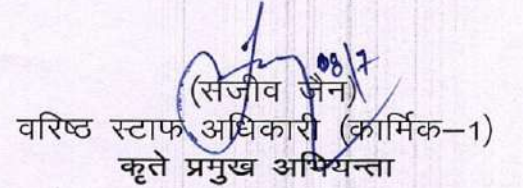 08/7
(संजीव जैन)
वरिष्ठ स्टाफ अधिकारी (कार्मिक–1)
कृते प्रमुख अभियन्ता